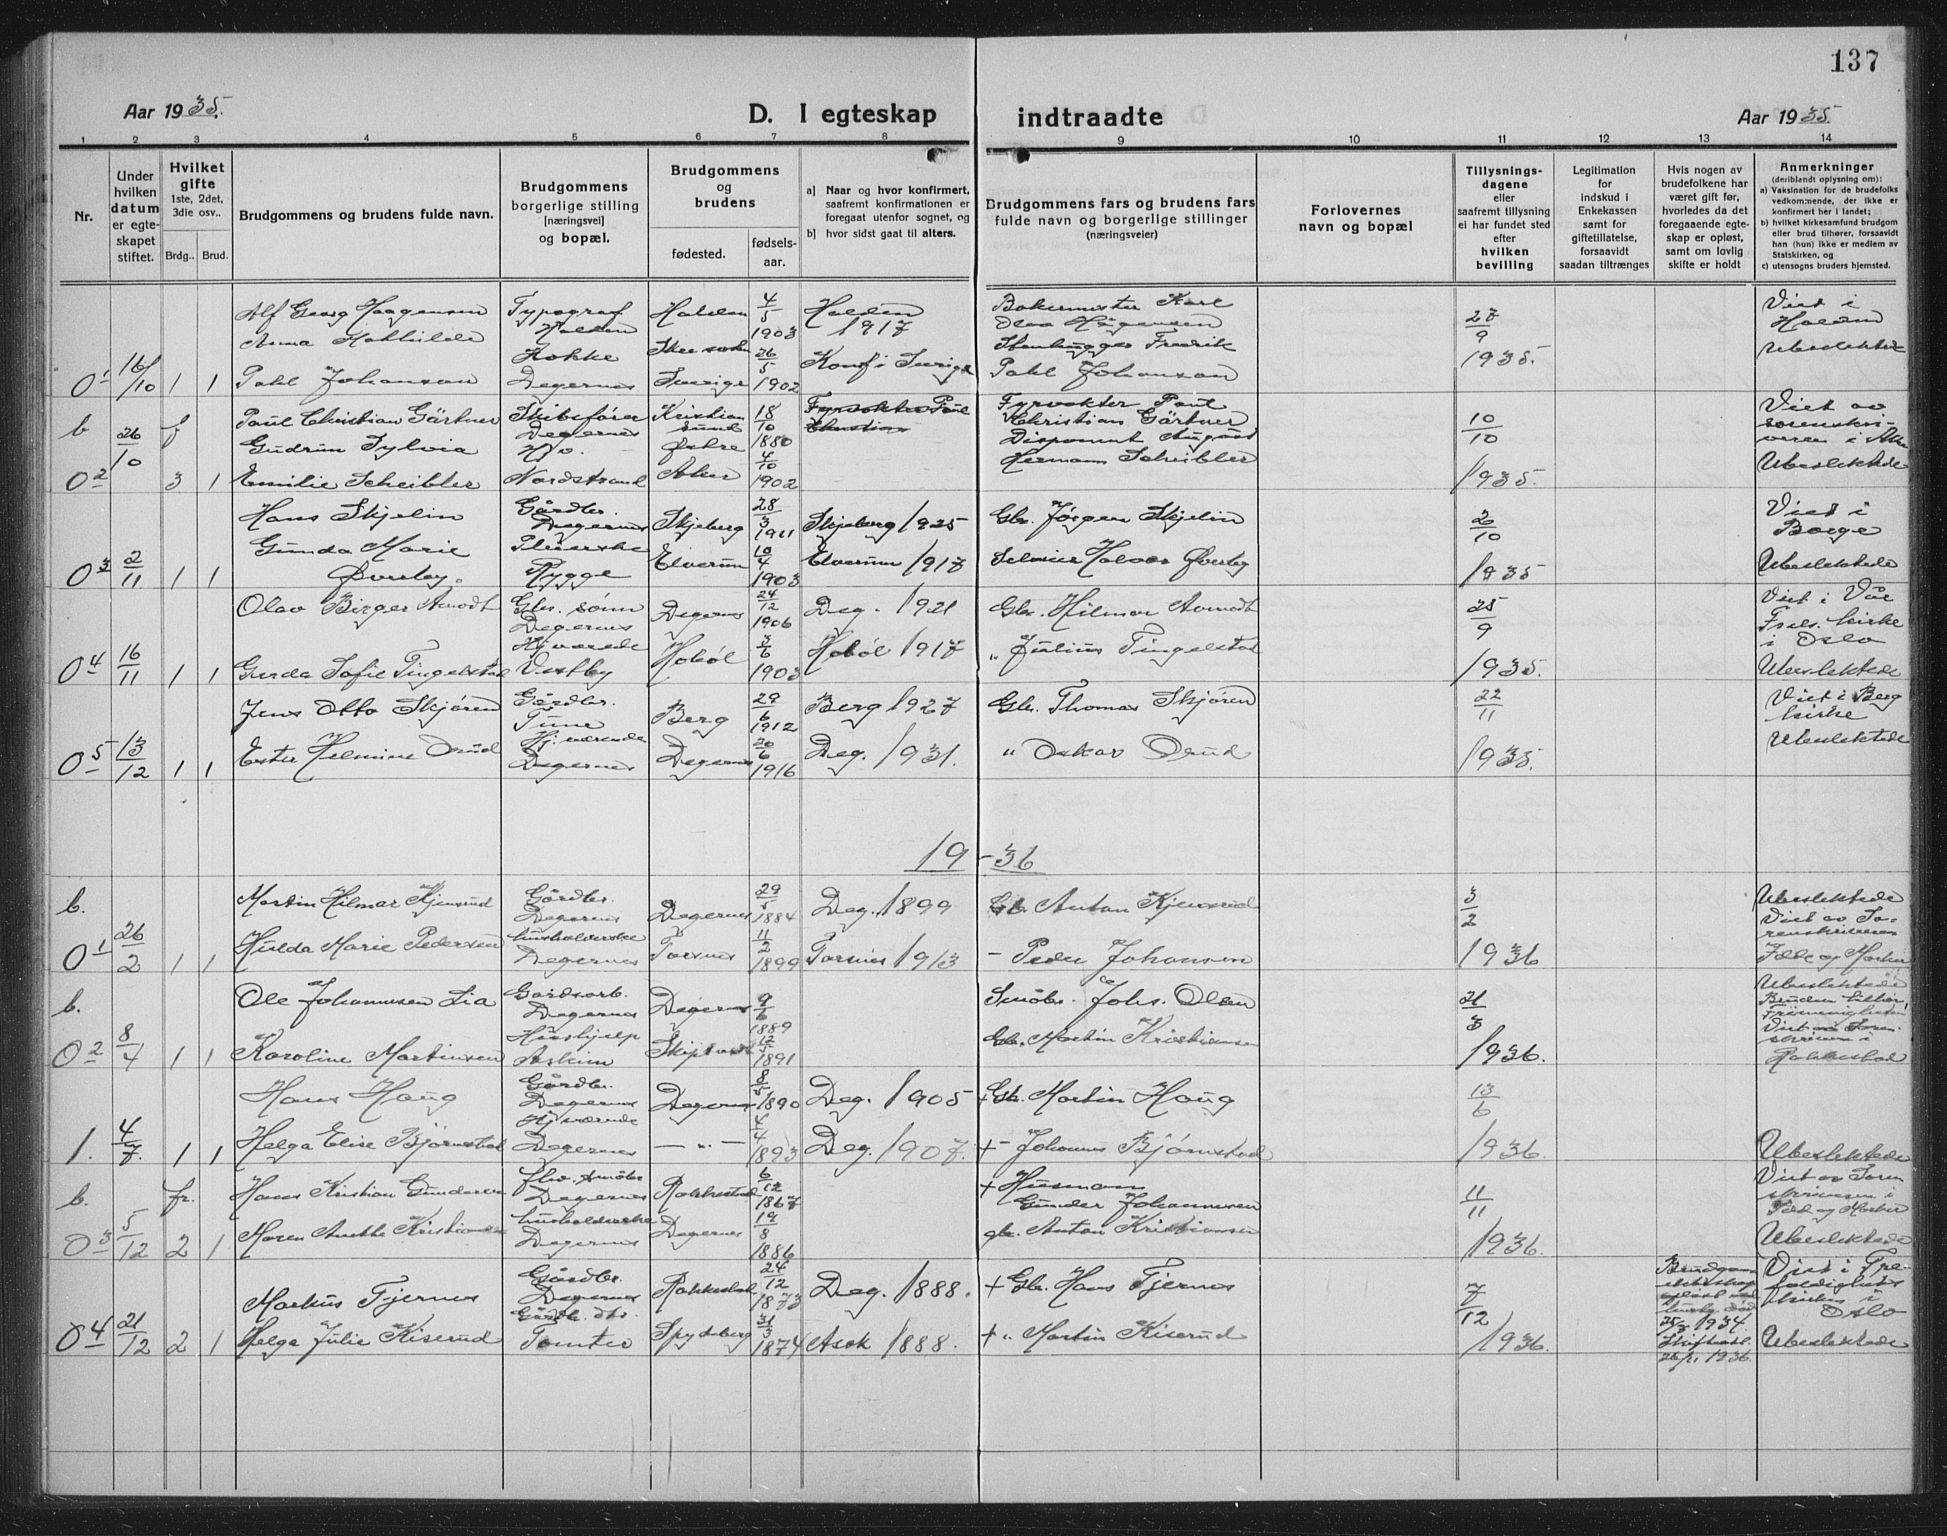 137
Aar 1935.
D. I egteskap indtraadte
Aar 1935
1 2 3 4 5 6 7 8 9 10 11 12 13 14
Nr.
Under hvilken datum er egteskapet stiftet.
Hvilket gifte 1ste, 2det, 3die osv..
Brdg..
Brud.
Brudgommens og brudens fulde navn.
Brudgommens borgerlige stilling [næringsvei] og bopæl.
Brudgommens og brudens
fødested.
fødsels-aar.
a) Naar og hvor konfirmert, saafremt konfirmationen er foregaat utenfor sognet, og
b) hvor sidst gaat til alters.
Brudgommens fars og brudens fars fulde navn og borgerlige stillinger (næringsveier)
Forlovernes navn og bopæl
Tillysningsdagene eller saafremt tillysning ei har fundet sted efter hvilken bevilling
Legitimation for indskud i Enkekassen samt for giftetillatelse, forsaavidt saadan tiltrænges
Hvis nogen av brudefolkene har været gift før, hvorledes da det foregaaende egteskap er opløst, samt om lovlig skifte er holdt
Anmerkninger (deriblandt oplysning om): a) Vaksination for de brudefolks vedkommende, der ikke er konfirmert her i landet; b) hvilket kirkesamfund brudgom eller brud tilhører, forsaavidt han (hun) ikke er medlem av Statskirken, og c) utensogns bruders hjemsted.
01 16/10 1 1
Alf Georg Haagensen Typograf Halden Halden 4/5 1903 Halden 1917 Bakermester Karl Olaf Hågensen 27/9 1935. Viet i Halden
Anna Mathilde Pahl Johanson Kokke Degernes Sverige 26/5 1902 Konf i Sverige Stenhugger Fredrik Pahl Johanson Ubeslektede
b 02 26/10 f 3 1
Paul Christian Gärtner Skibsfører Degernes Kristiansund 18/10 1880 Fyrvokter Paul Christian Gärtner 10/10 1935. Viet av sorenskriveren i Aker
Gudrun Sylvia Emilie Scheibler Nordstrand Aker 4/10 1902 Disponent August Hermann Scheibler Ubeslektede
03 2/11 1 1
Hans Skjelin Gårdbr. Degernes Skjeberg 28/3 1911 Skjeberg 1925 Gbr. Jørgen Skjelin 20/10 1935 Viet i Borge
Gunda Marie Øverby. Pleierske Rygge Elverum 10/4 1903 Elverum 1917 Halvor Øverby Ubeslektede
04 16/11 1 1
Olav Birger Amodt Gbr. sønn Degernes Degernes 24/12 1906 Deg. 1921 Gbr. Hilmar Amodt 25/9 1935. Viet i Vår Frels. kirke i Oslo
Gerda Sofie Tingelstad Hj.værende Vestby Hobøl 3/6 1903 Hobøl 1917 " Julius Tingelstad Ubeslektede
05 13/12 1 1
Jens Otto Skjøren Gårdbr. Tune Berg 29/6 1912 Berg 1927 Gbr. Thomas Skjøren 22/11 1935. Viet i Berg kirke
Ester Helmine Orud Hj.værende Degernes Degernes 20/6 1916 Deg. 1931. " Oskar Orud Ubeslektede
19-36
b. 01 26/2 1 1
Martin Hilmar Kjensrud Gårdbr. Degernes Degernes 29/5 1884 Deg. 1899 Gbr. Anton Kjensrud 3/2 1936 Ubeslektede Viet av Sorenskriveren
Hulda Marie Pedersen husholderske Degernes Torsnes 11/2 1899 Torsnes 1913 - Peder Johansen
b. 02 8/4 1 1
Ole Johannesen Lia Gårdsarb. Degernes Degernes 9/6 1889 Småbr. Johs. Olsen 21/3 1936. Ubeslektede
Karoline Martinsen Hushjelp Askim Skiptvet 12/5 1891 Gbr. Martin Kristiansen Viet av Sorenskriveren i Rakkestad
1. 4/7. 1 1
Hans Haug Gårdbr. Degernes Degernes 8/5 1890 Deg. 1905 + Gbr. Martin Haug 13/6 1936.
Helga Elise Bjørnstad Hj.værende Degernes — " — 4/4 1893 Deg. 1907. + - Johannes Bjørnstad Ubeslektede
b. 03 5/12 fr. 2 1
Hans Kristian Gundersen Degernes Rakkestad 6/12 1867 + Husmann Gunder Johannesen 11/11 1936. Viet av Sorenskriveren i
Maren Anette Kristiansen husholderske Degernes Degernes 19/8 1886 gbr. Anton Kristiansen Ubeslektede
04 21/12 2 1
Markus Tjernes Gårdbr. Degernes Rakkestad 24/12 1873 Deg. 1888. + Gbr. Hans Tjernes 7/12 1936. 1934. 1936. Viet i Trefoldighets kirken i Oslo
Helga Julie Kiserud Gårdbr. dtr. Tomter Spydeberg 31/3 1874 Asak 1888. + " Martin Kiserud Ubeslektede